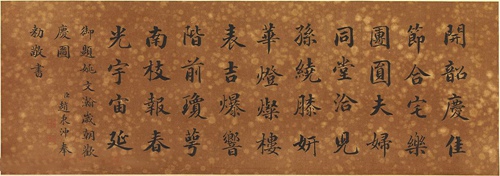 開韶慶佳
節合宅樂
團圓夫婦
同堂洽兒
孫繞膝妍
華燈燦樓
表吉爆響
階前瓊萼
南枝報春
光宇宙延
御題姚文瀚歲朝歡
慶圖
臣趙秉沖奉
勅敬書